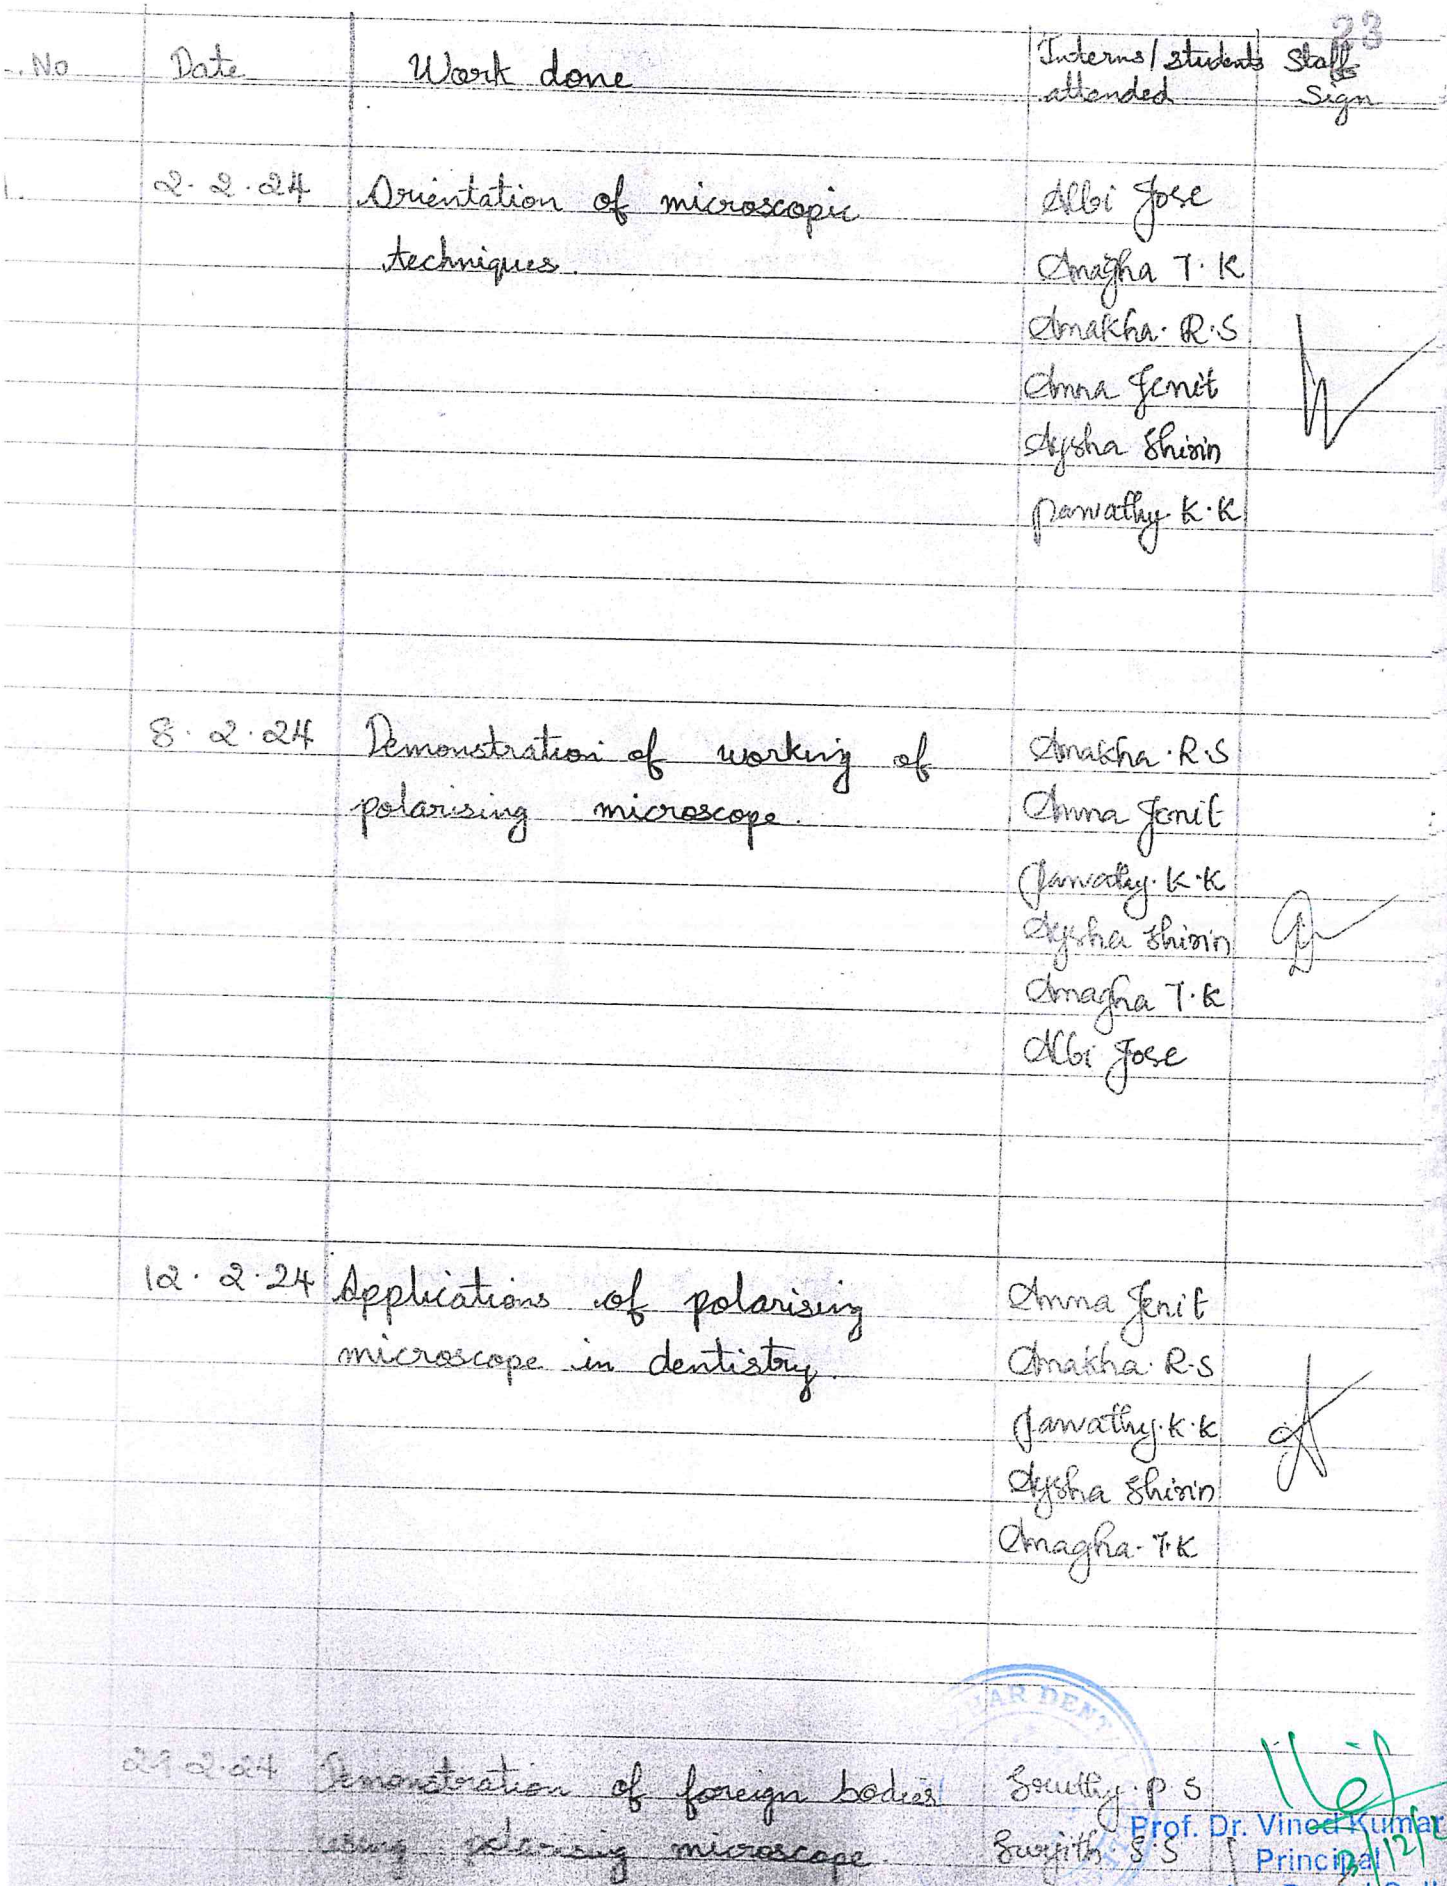 23
No Date Work done Interns/students attended Staff Sign
1. 2.2.24 Orientation of microscopic Albi Jose
techniques. Anagha T.K
Amakha.R.S
Anna Jenit
Aysha Shirin
Parvathy.K.K
8.2.24 Demonstration of working of Amakha.R.S
polarising microscope. Anna Jenit
Parvathy.K.K
Aysha Shirin
Anagha T.K
Albi Jose
12.2.24 Applications of polarising Anna Jenit
microscope in dentistry. Amakha.R.S
Parvathy.K.K
Aysha Shirin
Anagha.T.K
AR DENT
2.24 Demonstration of foreign bodies Sruthy.P S
using polarisig microscope. Surjith S S
Prof. Dr. Vinod Kumar
Principal